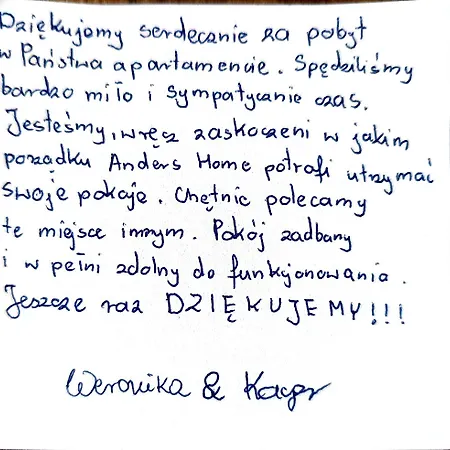 Dziękujemy serdecznie za pobyt
w Państwa apartamencie. Spędziliśmy
bardzo miło i sympatycznie czas.
Jesteśmy, wręcz zaskoczeni w jakim
porządku Anders Home potrafi utrzymać
swoje pokoje. Chętnie polecamy
te miejsce innym. Pokój zadbany
i w pełni zdolny do funkcjonowania.
Jeszcze raz DZIĘKUJEMY!!!
Weronika & Kacper